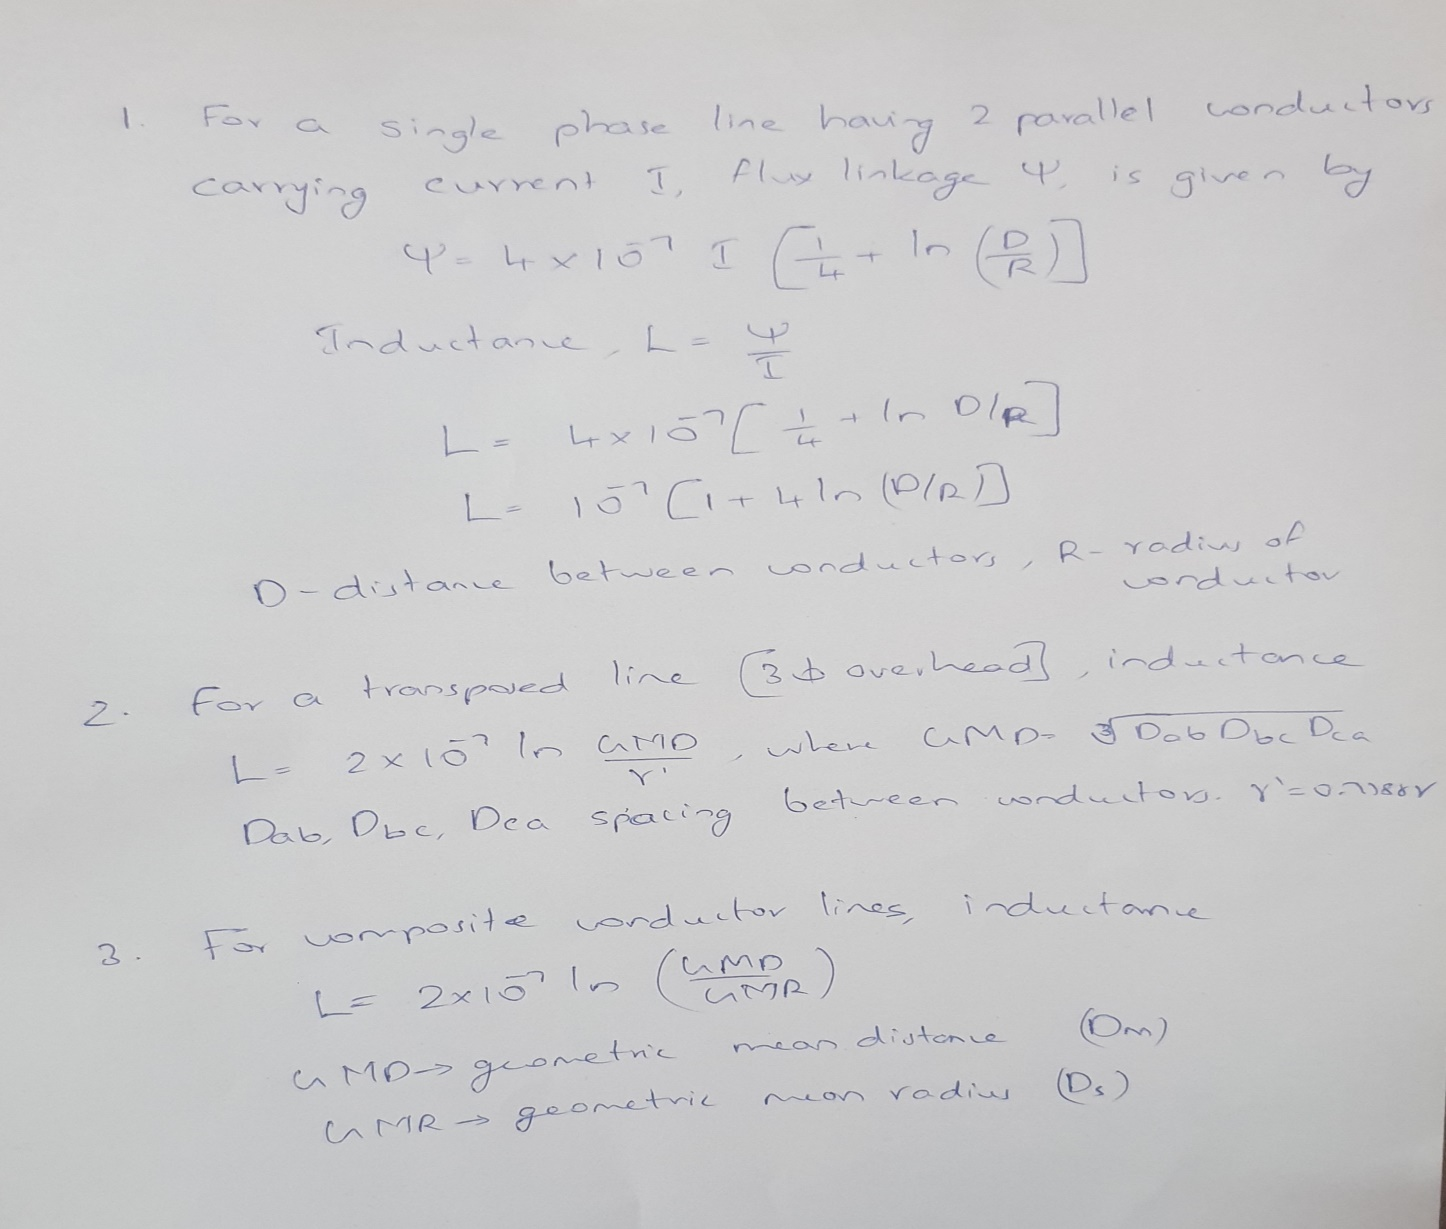 1. For a single phase line having 2 parallel conductors
carrying current I, flux linkage Ψ, is given by
Ψ = 4 × 10⁻⁷ I [1/4 + ln (D/R)]
Inductance, L = Ψ/I
L = 4 × 10⁻⁷ [1/4 + ln D/R]
L = 10⁻⁷ [1 + 4 ln (D/R)]
D - distance between conductors, R - radius of
conductor
2. For a transposed line [3ϕ overhead], inductance
L = 2 × 10⁻⁷ ln GMD/r', where GMD = ∛Dab Dbc Dca
Dab, Dbc, Dca spacing between conductors. r' = 0.7788r
3. For composite conductor lines, inductance
L = 2×10⁻⁷ ln (GMD/GMR)
GMD → geometric mean distance (Dm)
GMR → geometric mean radius (Ds)